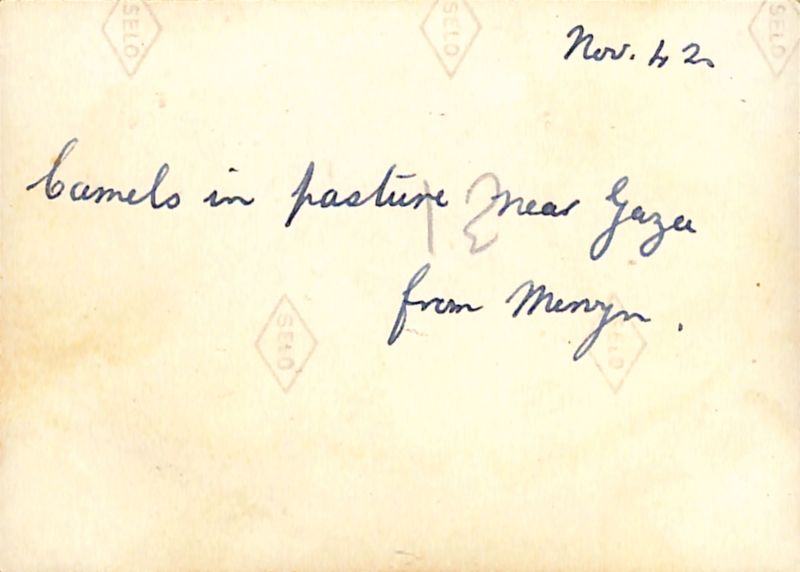 SELO SELO SELO
Nov. 42
Camels in pasture near Gaza
from Mervyn.
SELO SELO